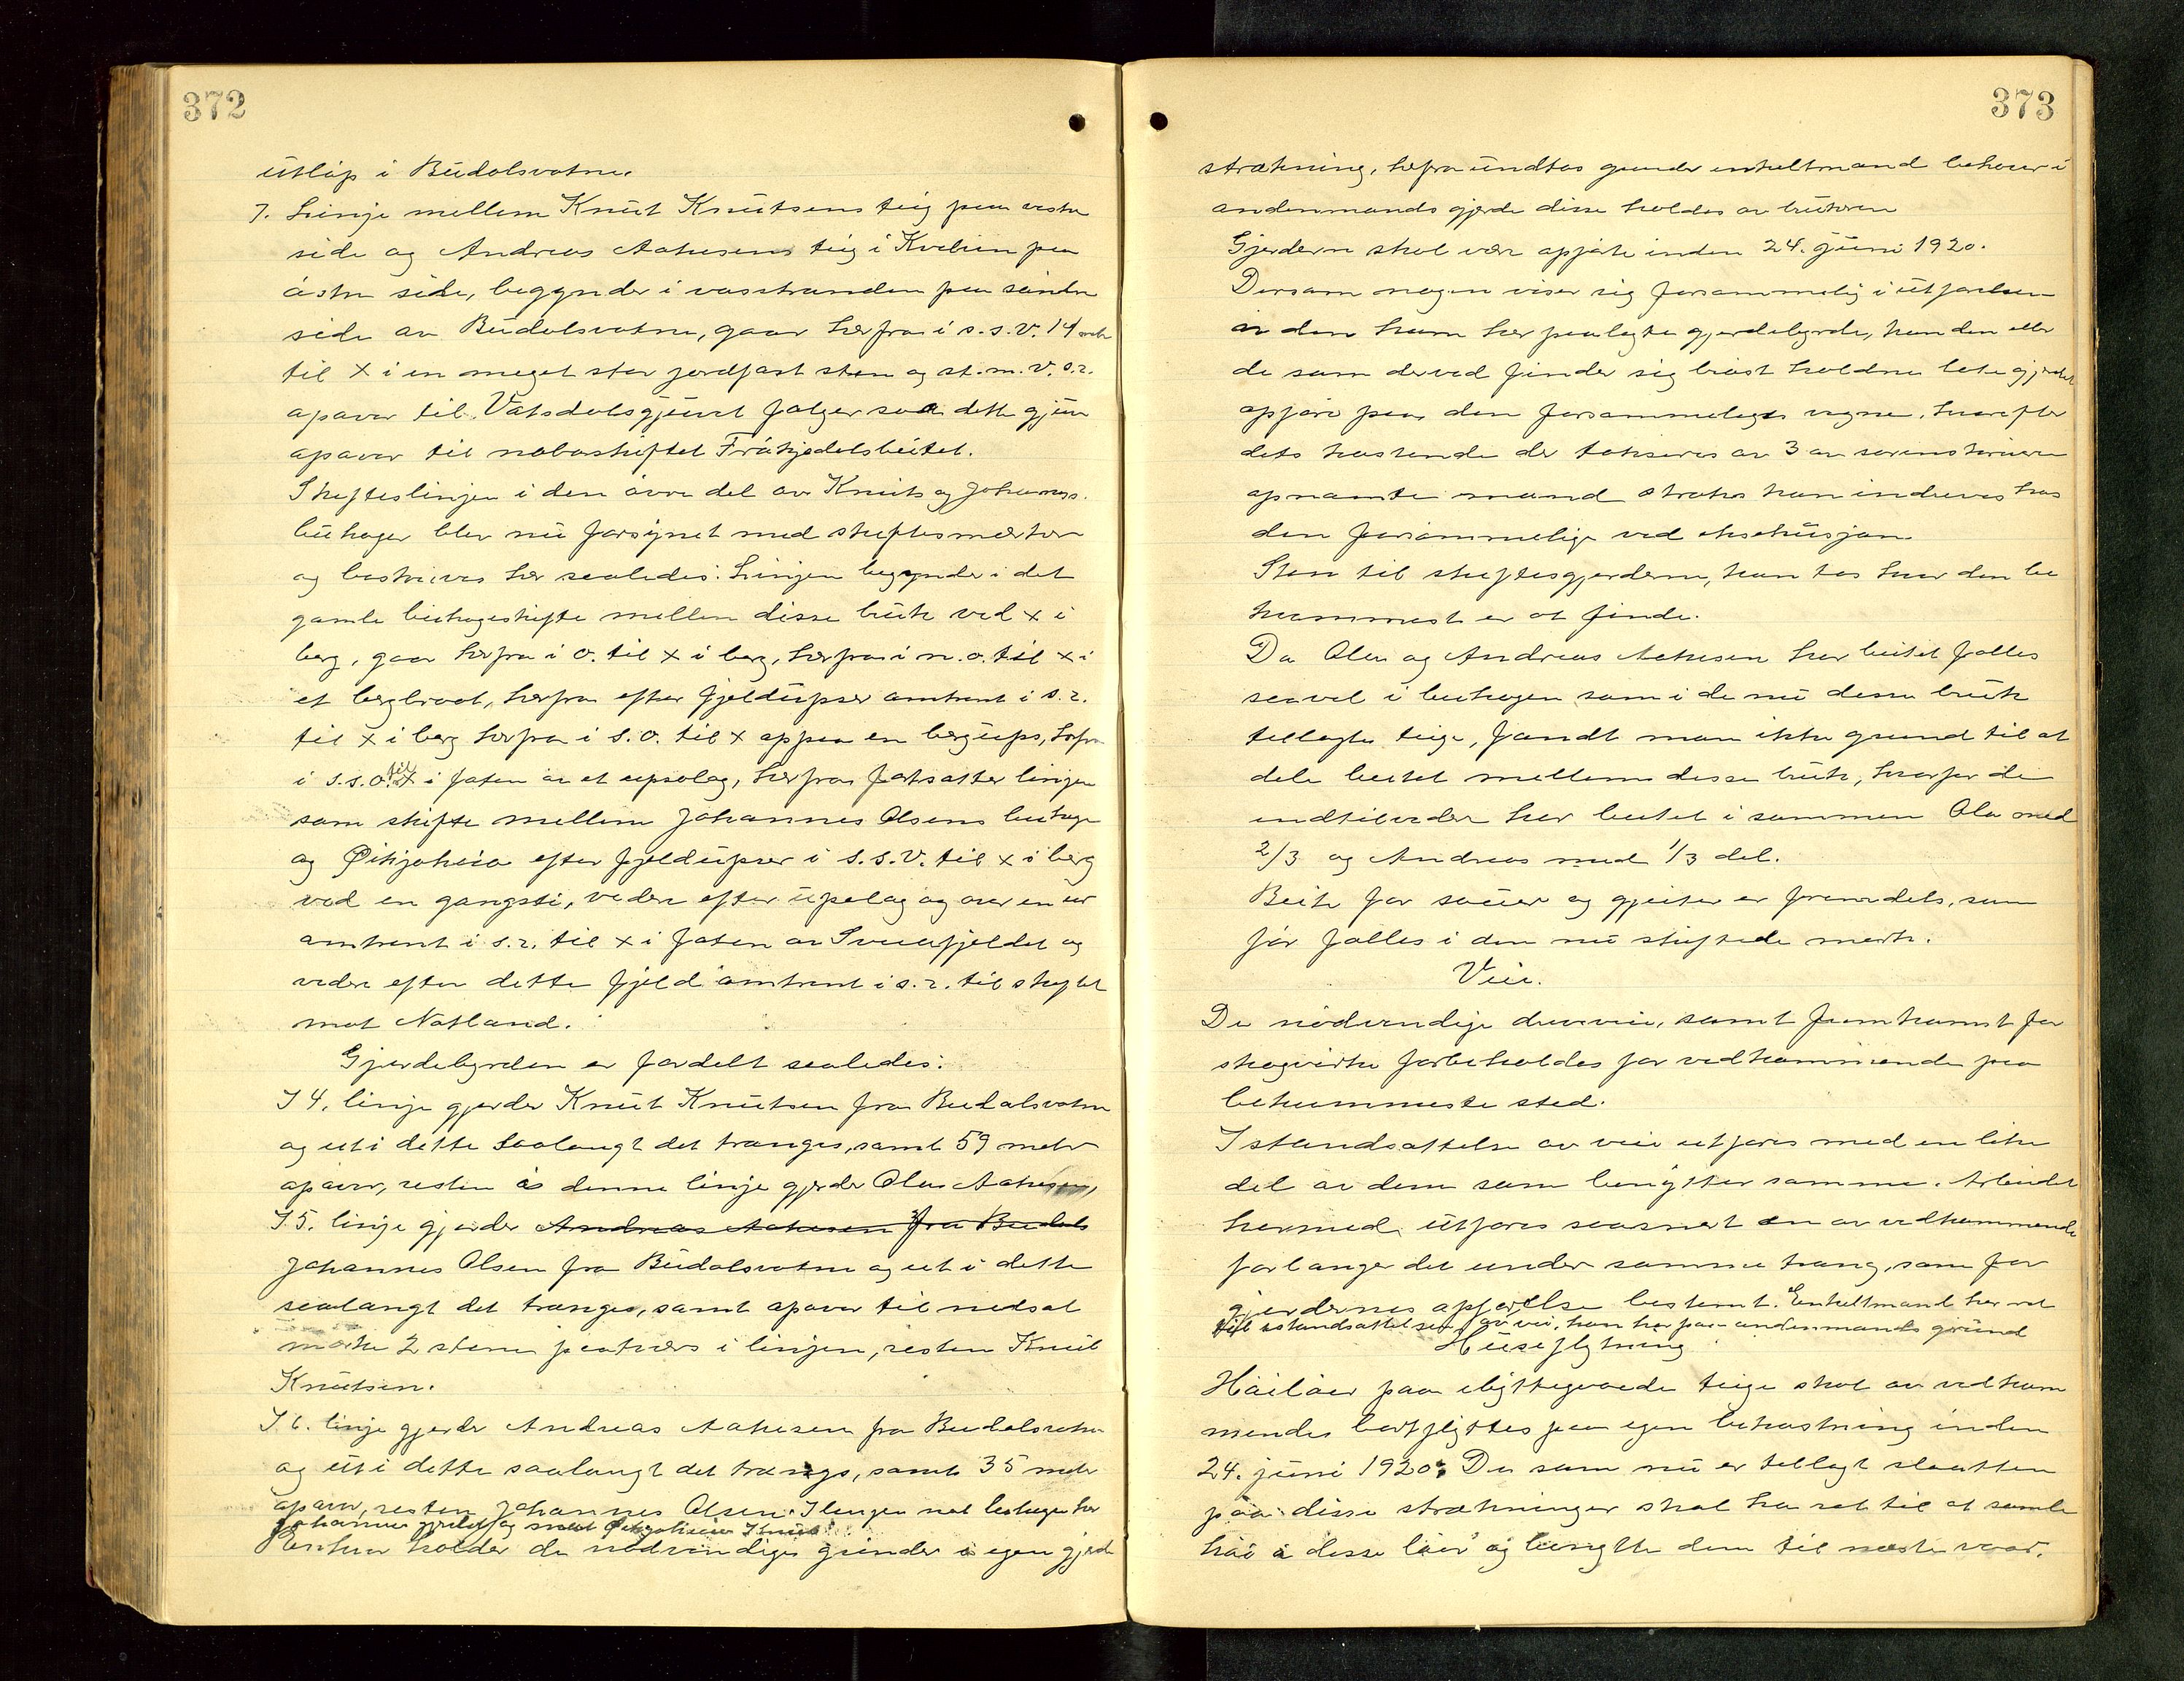 372
utløp i Budalsvatne.
7. Linje mellem Knut Knutsens teig paa vestre
side og Andreas Aakesens teig i Kvelven paa
østre side, begynder i vasstranden paa søndre
side av Budalsvatne, gaar herfra i s.s.v. 14 meter
til x i en meget stor jordfast sten og st. m. v. s.r.
opover til Vatsdalsgjuvet følger saa dette gjuv
opover til naboskiftet Frøkjedalsbeitet.
Skifteslinjen i den øvre del av Knuts og Johannes.
buhager blev nu forsynet med skiftesmerker
og beskrives her saaledes: Linjen begynder i det
gamle buhageskifte mellem disse bruk ved x i
berg, gaar herfra i o. til x i berg, herfra i n.o. til x i
et bergbrot, herfra efter fjeldupser omtrent i s.r.
til x i berg herfra i s.o. til x oppaa en bergups, herfra
i s.s.o. til x i foten av et upsolag, herfra fortsætter linjen
som skifte mellem Johannes Olsens buhage
og Øikjaheia efter fjeldupser i s.s.v. til x i berg
ved en gangsti, videre efter upselag og over en ur
omtrent i s.r. til x i foten av Svenfjeldet og
videre efter dette fjeld omtrent i s.r. til skiftet
mot Natland.
Gjerdebyrden er fordelt saaledes:
I 4. linje gjerder Knut Knutsen fra Budalsvatne
og ut i dette saalangt det trænges, samt 59 meter
opover, resten av denne linje gjerder Olav Aakesen,
I 5. linje gjerder Andreas Aakesen fra Budals
Johannes Olsen fra Budalsvatne og ut i dette
saalangt det trænges, samt opover til nedsat
merke 2 stener paatvers i linjen, resten Knut
Knutsen.
I 6. linje gjerder Andreas Aakesen fra Budalsvatne
og ut i dette saalangt det trænges, samt 35 meter
opover, resten Johannes Olsen. I linjen mot buhagen har
Johannes gjerdet og mot Øikjaheia Knut
Enhver holder de nødvendige grinder i egen gjerde
373
strækning, herfra undtas grinder enkeltmand behøver i
andenmands gjerde disse holdes av brukeren
Gjerderne skal være opførte inden 24. juni 1920.
Dersom nogen viser sig forsømmelig i utførelsen
av den ham her paalagte gjerdebyrde, kan den eller
de som derved finder sig brøst holdne late gjerdet
opføre paa den forsømmeliges vegne, hvorefter
dets kostende der takseres av 3 av sorenskriveren
opnævnte mænd straks kan inndrives hos
den forsømmelige ved eksekusjon.
Sten til skiftesgjerderne, kan tas hvor den be
kvemmest er at finde.
Da Olav og Andreas Aakesen har beitet fælles
saavel i buhagen som i de nu disse bruk
tillagte teige, fandt man ikke grund til at
dele beitet mellem disse bruk, hvorfor de
indtilvidere har beitet i sammen Olav med
2/3 og Andreas med 1/3 del.
Beite for sauer og gjeiter er fremdeles, som
før fælles i den nu skiftede mark.
Veie.
De nødvendige drivveie, samt fremkomst for
skogvirke forbeholdes for vedkommende paa
bekvemmeste sted.
Istandsættelse av veie utføres med en like
del av dem som benytter samme. Arbeidet
hermed utføres saasnart en av vedkommende
forlanger det under samme tvang, som for
gjerdernes opførelse bestemt. Enkeltmand har ret
til istandsættelse av vei, han har paa andenmands grund
Huseflytning
Høiløer paa ombyttegaaede teige skal av vedkom
mendes bortflyttes paa egen bekostning inden
24. juni 1920. De som nu er tillagt slaatten
paa disse strækninger skal ha ret til at samle
høi i disse løer og benytte dem til næste vaar.